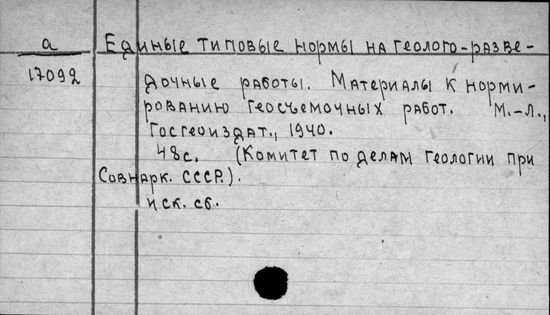 а
17092
Единые типовые нормы на геолого-разве-
дочные работы. Материалы к норми-
рованию геосъемочных работ. М.-Л.,
Госгеоиздат., 1940.
48с. (Комитет по делам геологии при
Совнарк. СССР.).
иск. сб.